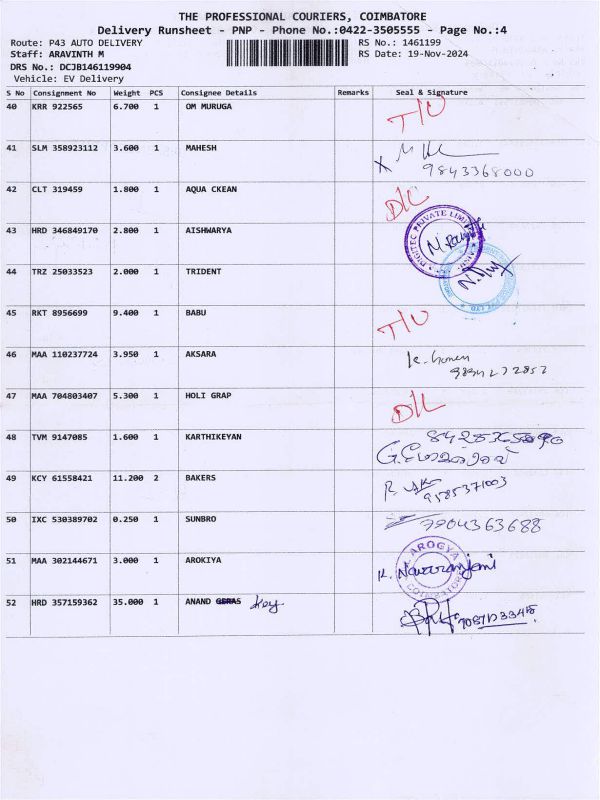 THE PROFESSIONAL COURIERS, COIMBATORE
Delivery Runsheet - PNP - Phone No.:0422-3505555 - Page No.:4
Route: P43 AUTO DELIVERY RS No.: 1461199
Staff: ARAVINTH M RS Date: 19-Nov-2024
DRS No.: DCJB146119904
Vehicle: EV Delivery
S No Consignment No Weight PCS Consignee Details Remarks Seal & Signature
40 KRR 922565 6.700 1 OM MURUGA T/U
41 SLM 358923112 3.600 1 MAHESH
9843368000
42 CLT 319459 1.800 1 AQUA CKEAN D/L
43 HRD 346849170 2.800 1 AISHWARYA DIGITEC PRIVATE LIMITED
44 TRZ 25033523 2.000 1 TRIDENT
45 RKT 8956699 9.400 1 BABU T/U
46 MAA 110237724 3.950 1 AKSARA
47 MAA 704803407 5.300 1 HOLI GRAP D/L
48 TVM 9147085 1.600 1 KARTHIKEYAN
49 KCY 61558421 11.200 2 BAKERS
9585371003
50 IXC 530389702 0.250 1 SUNBRO 7904363688
51 MAA 302144671 3.000 1 AROKIYA AROGYA COIMBATORE
52 HRD 357159362 35.000 1 ANAND Key